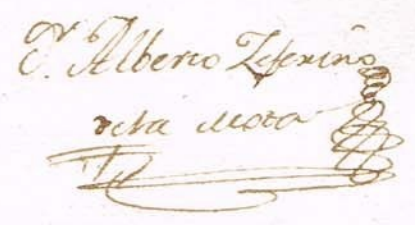 Dr. Alberto Zeferino
de la Mota